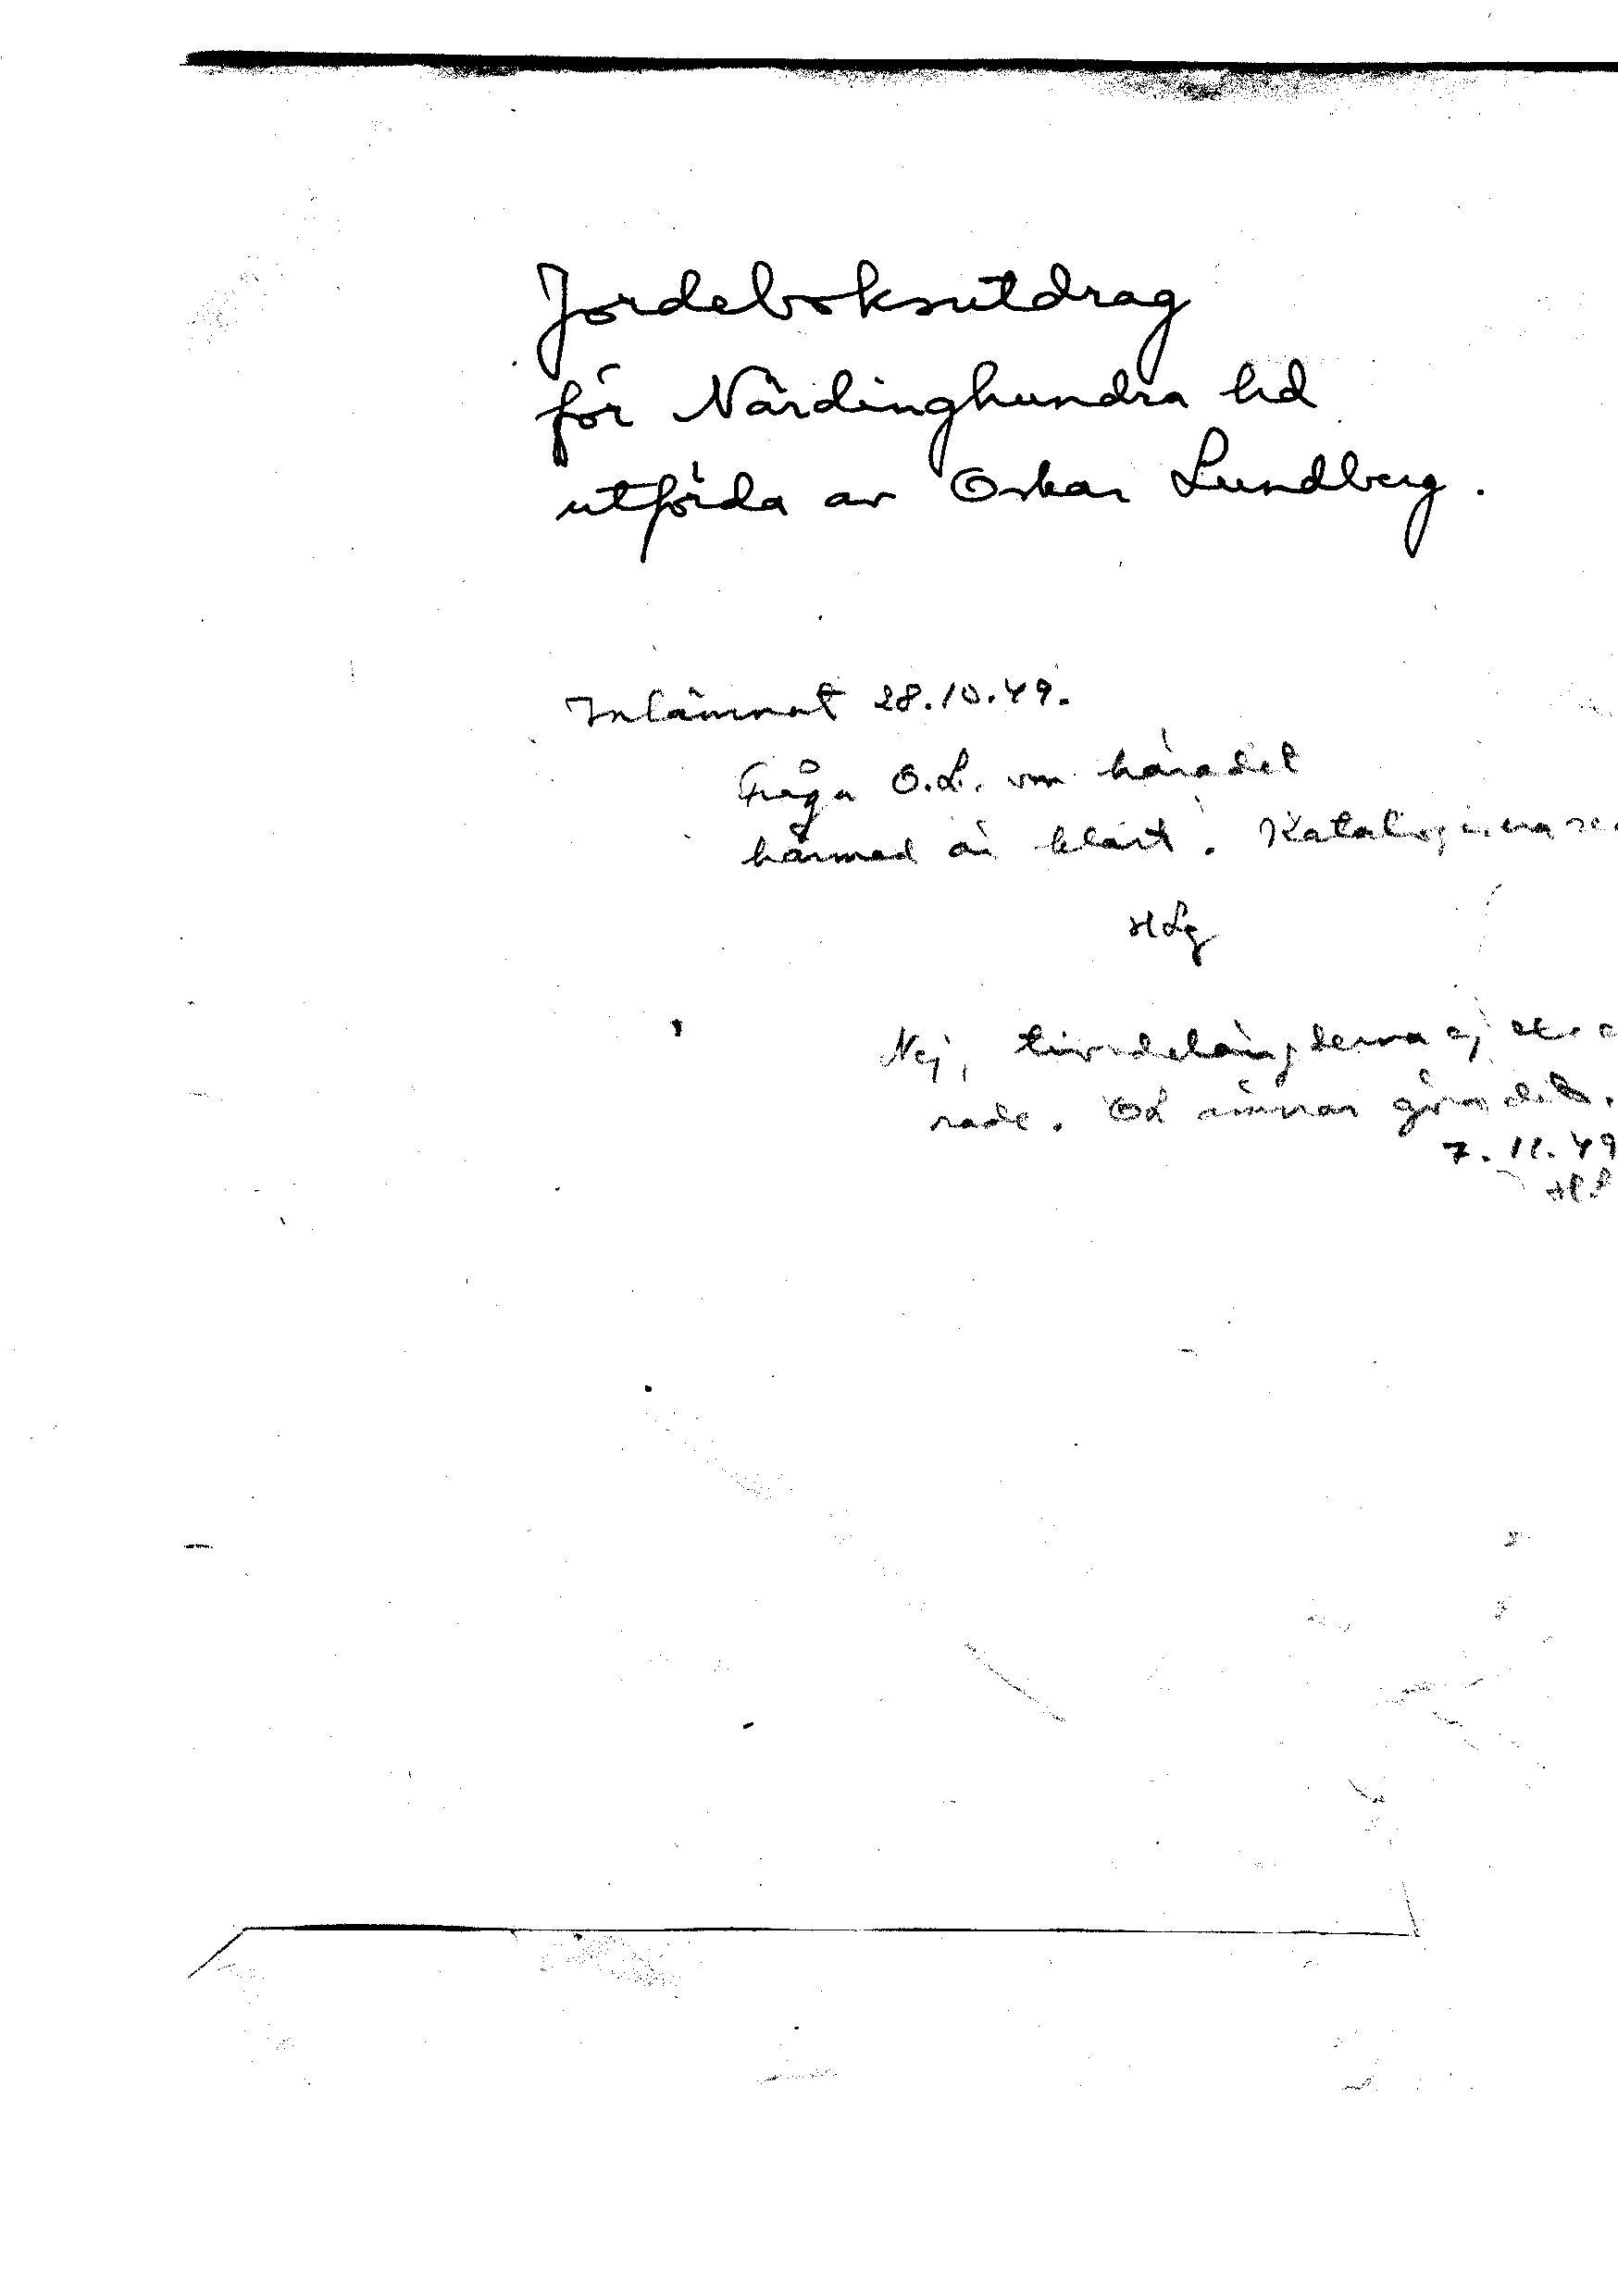 Jordeboksutdrag
för Närdinghundra hd
utförda av Oskar Lundberg.
Inlämnat 28.10.49.
Fråga O.L. om häradet
härmed är klart. Katalogisera
HLg
Nej, tiondelängderna ej
rade. OL ämnar göra det.
7.11.49